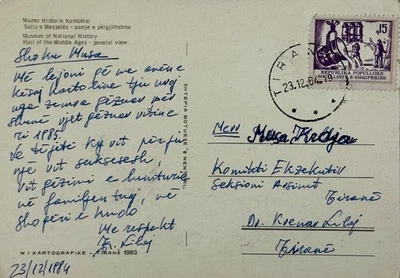 Muzeu Historik Kombëtar
Salla e Mesjetës - pamje e përgjithshme
Museum of National History
Hall of the Middle Ages - general view.
Shoku Musa
Më lejoni që me anën e
kësaj kartoline t'ju uroj
nga zemra gëzuar për
shumë vjet gëzuar vitin e
ri 1985
Le t'ju jetë ky vit përju
një vit suksesesh,
vit gëzimi e lumturie
në familjen tuaj, në
shoqëri e kudo
Me respekt
K. Lilaj
23/12/1984
N I KARTOGRAFIKE - TIRANË 1983
SHTEPIA BOTUESE "8 NËNTORI"
TIRANË
23.12.84
REPUBLIKA POPULLORE
SOCIALISTE E SHQIPERISE
Musa Kraja
Komiteti Ekzekutiv
Seksioni Arsimit
Tiranë
Lilaj
Tiranë